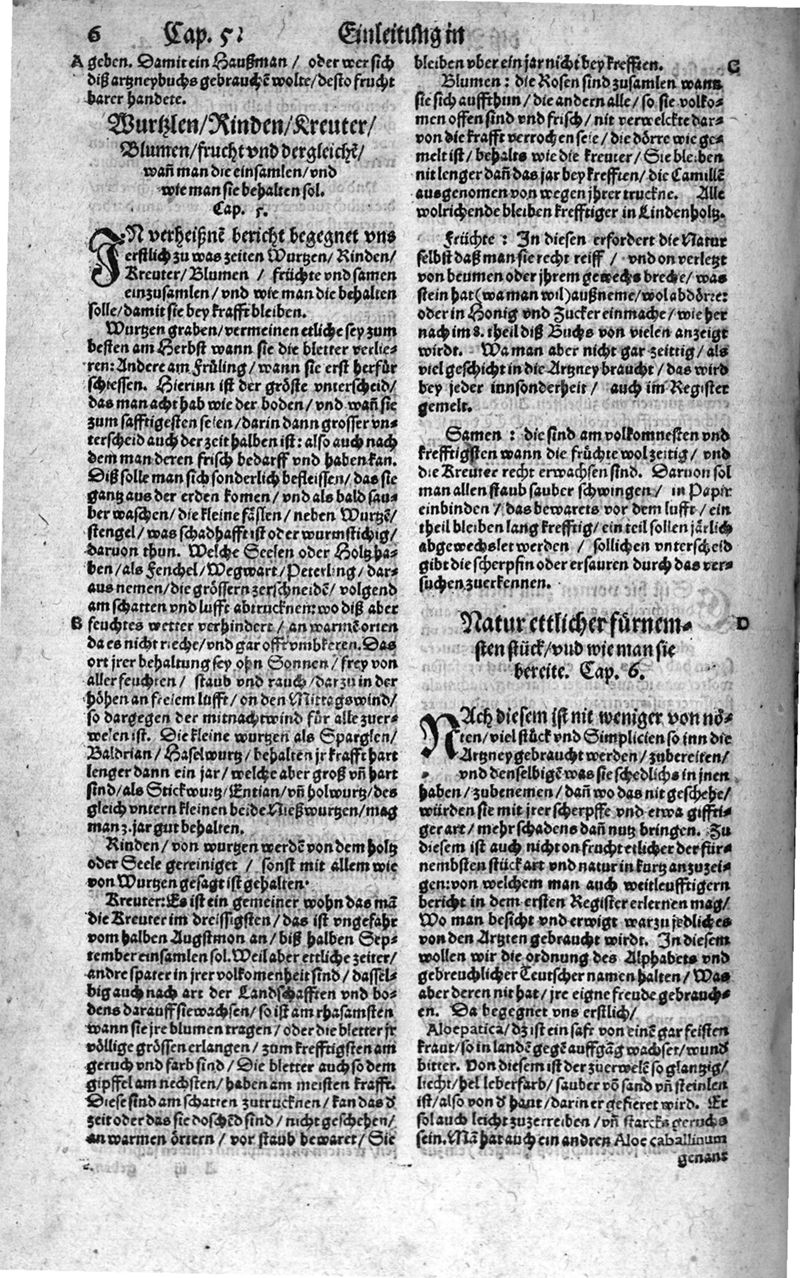 6 Cap. 5. Einleitung in
A geben. Damit ein Haußman / oder wer sich
diß artzneybuchs gebrauchẽ wolte/desto frucht
barer handete.
Wurtzlen/Rinden/Kreuter/
Blumen/frucht vnd dergleichẽ/
wañ man die einsamlen/vnd
wie man sie behalten sol.
Cap. 5.
IN verheißnẽ bericht begegnet vns
erstlich zu was zeiten Wurtzen/Rinden/
Kreuter/Blumen / früchte vnd samen
einzusamlen/vnd wie man die behalten
solle/damit sie bey krafft bleiben.
Wurtzen graben/vermeinen etliche sey zum
besten am Herbst wann sie die bletter verlie-
ren: Andere am Früling/wann sie erst herfür
schiessen. Hierinn ist der gröste vnterscheid/
das man acht hab wie der boden/vnd wañ sie
zum safftigesten seien/darin dann grosser vn-
terscheid auch der zeit halben ist: also auch nach
dem man deren frisch bedarff vnd haben kan.
Diß solle man sich sonderlich befleissen/das sie
gantz aus der erden komen/vnd als bald sau-
ber waschen/die kleine fäslen/neben Wurtzẽ/
stengel/was schadhafft ist oder wurmstichig/
daruon thun. Welche Seelen oder Holtz ha-
ben/als Fenchel/Wegwart/Peterling/dar-
aus nemen/die grössern zerschneidẽ/volgend
am schatten vnd lufft abtrucknen: wo diß aber
B feuchtes wetter verhindert/an warmẽ orten
da es nicht rieche/vnd gar offt vmbkeren. Das
ort jrer behaltung sey ohn Sonnen/frey von
aller feuchten/ staub vnd rauch/darzu in der
höhen an freiem lufft/on den Mittagswind/
so dargegen der mitnachtwind für alle zuer-
welen ist. Die kleine wurtzen als Sparglen/
Baldrian/Haselwurtz/behalten jr krafft hart
lenger dann ein jar/welche aber groß vñ hart
sind/als Stickwurtz/Entian/vñ holwurtz/des
gleich vntern kleinen beide Nießwurtzen/mag
man 3. jar gut behalten.
Rinden/von wurtzen werdẽ von dem holtz
oder Seele gereiniget / sonst mit allem wie
von Wurtzen gesagt ist gehalten.
Kreuter: Es ist ein gemeiner wohn das mã
die Kreuter im dreissigsten/das ist vngefahr
vom halben Augstmon an/biß halben Sep-
tember einsamlen sol. Weil aber ettliche zeiter/
andre spater in jrer volkomenheit sind/dassel-
big auch nach art der Landschafften vnd bo-
dens darauff sie wachsen/so ist am rhasamsten
wann sie jre blumen tragen/oder die bletter jr
völlige grössen erlangen/zum krefftigsten am
geruch vnd farb sind/Die bletter auch so dem
gipffel am nechsten/haben am meisten krafft.
Diese sind am schatten zutrucknen/kan das ď
zeit oder das sie doschẽd sind/nicht geschehen/
an warmen örtern/vor staub bewaret/Sie
bleiben vber ein jar nicht bey krefften. C
Blumen: die Rosen sind zusamlen wann
sie sich auffthun/die andern alle/so sie volko-
men offen sind vnd frisch/nit verwelckte dar-
von die krafft verrochen seie/die dörre wie ge-
melt ist/behalts wie die kreuter/Sie bleiben
nit lenger dann das jar bey krefften/die Camillẽ
ausgenomen von wegen jhrer truckne. Alle
wolrichende bleiben krefftiger in Lindenholtz.
Früchte: In diesen erfordert die Natur
selbst daß man sie recht reiff / vnd on verletzt
von beumen oder jhrem gewechs breche/was
stein hat (wa man wil) außneme/wol abdörre:
oder in Honig vnd Zucker einmache/wie her
nach im 8. theil diß Buchs von vielen anzeigt
wirdt. Wa man aber nicht gar zeittig/als
viel geschicht in die Artzney braucht/das wird
bey jeder innsonderheit / auch im Register
gemelt.
Samen: die sind am volkomnesten vnd
krefftigsten wann die früchte wolzeitig/vnd
die Kreuter recht erwachsen sind. Daruon sol
man allen staub sauber schwingen/ in Papir
einbinden/das bewarets vor dem lufft/ein
theil bleiben lang krefftig/ein teil sollen järlich
abgewechslet werden / sollichen vnterscheid
gibt die scherpfin oder ersauren durch das ver-
suchen zuerkennen.
Natur ettlicher fürnem- D
sten stück/vnd wie man sie
bereite. Cap. 6.
NAch diesem ist nit weniger von nö-
ten/viel stück vnd Simplicien so inn die
Artzney gebraucht werden/zubereiten/
vnd denselbigẽ was sie schedlichs in jnen
haben/zubenemen/dañ wo das nit geschehe/
würden sie mit jrer scherpffe vnd etwa gifftri-
ger art/mehr schadens dañ nutz bringen. Zu
diesem ist auch nicht on frucht etlicher der für-
nembsten stück art vnd natur in kurtz anzuzei-
gen: von welchem man auch weitleufftigern
bericht in dem ersten Register erlernen mag/
Wo man besicht vnd erwigt warzu jedliches
von den Artzten gebraucht wirdt. In diesem
wollen wir die ordnung des Alphabets vnd
gebreuchlicher Teutscher namen halten/Was
aber deren nit hat/jre eigne freude gebrauch-
en. Da begegnet vns erstlich/
Aloepatica/dz ist ein saft von einẽ gar feisten
kraut/so in landẽ gegẽ auffgãg wachset/wund
bitter. Von diesem ist der zuerwelẽ so glantzig/
liecht/hel leberfarb/sauber võ sand vñ steinlen
ist/also von ď haut/darin er gefieret wird. Er
sol auch leicht zuzerreiben/vñ starcks geruchs
sein. Mã hat auch ein andren Aloe caballinum
genant